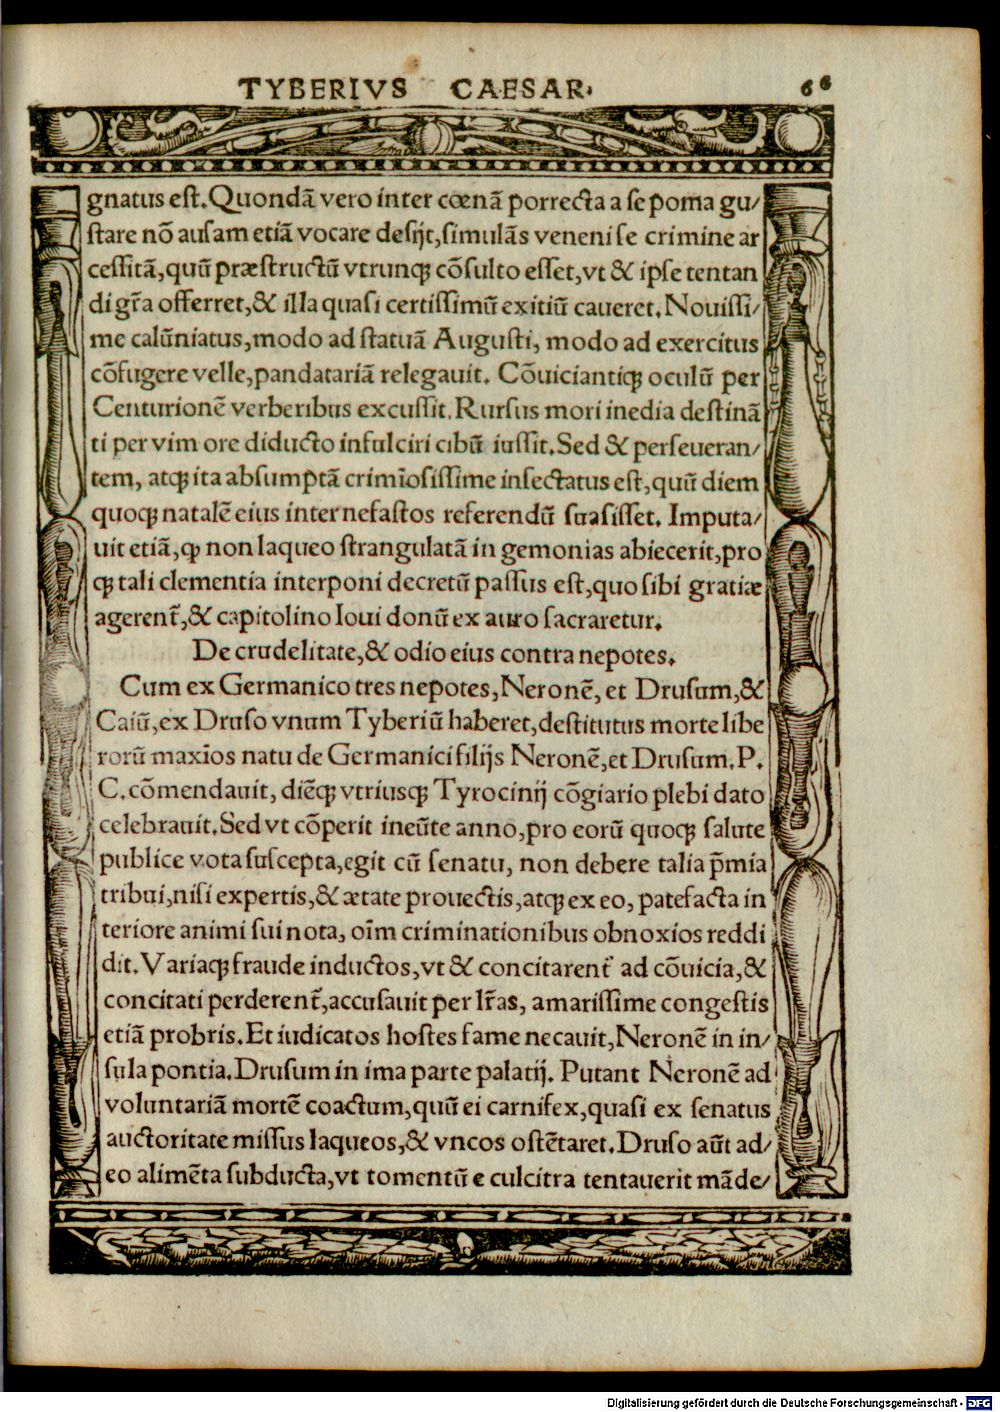 TYBERIVS CAESAR. 66
gnatus est. Quondã vero inter cœnã porrecta a se poma gu/
stare nõ ausam etiã vocare desijt, simulãs veneni se crimine ar
cessitã, quũ præstructũ vtrunq; cõsulto esset, vt & ipse tentan
di gr̃a offerret, & illa quasi certissimũ exitiũ caueret. Nouissi/
me calũniatus, modo ad statuã Augusti, modo ad exercitus
cõfugere velle, pandatariã relegauit. Cõuiciantiq; oculũ per
Centurionẽ verberibus excussit. Rursus mori inedia destinã
ti per vim ore diducto infulciri cibũ iussit. Sed & perseueran/
tem, atq; ita absumptã crimĩosissime insectatus est, quũ diem
quoq; natalẽ eius inter nefastos referendũ suasisset. Imputa/
uit etiã, ꝙ non laqueo strangulatã in gemonias abiecerit, pro
q; tali clementia interponi decretũ passus est, quo sibi gratiæ
agerent̃, & capitolino Ioui donũ ex auro sacraretur.
De crudelitate, & odio eius contra nepotes.
Cum ex Germanico tres nepotes, Neronẽ, et Drusum, &
Caiũ, ex Druso vnum Tyberiũ haberet, destitutus morte libe
rorũ maxĩos natu de Germanici filijs Neronẽ, et Drusum. P.
C. cõmendauit, diẽq; vtriusq; Tyrocinij cõgiario plebi dato
celebrauit. Sed vt cõperit ineũte anno, pro eorũ quoq; salute
publice vota suscepta, egit cũ senatu, non debere talia p̃mia
tribui, nisi expertis, & ætate prouectis, atq; ex eo, patefacta in
teriore animi sui nota, oĩm criminationibus obnoxios reddi
dit. Variaq; fraude inductos, vt & concitarent̃ ad cõuicia, &
concitati perderent̃, accusauit per lr̃as, amarissime congestis
etiã probris. Et iudicatos hostes fame necauit, Neronẽ in in/
sula pontia. Drusum in ima parte palatij. Putant Neronẽ ad
voluntariã mortẽ coactum, quũ ei carnifex, quasi ex senatus
auctoritate missus laqueos, & vncos ostẽtaret. Druso aũt ad/
eo alimẽta subducta, vt tomentũ e culcitra tentauerit mãde/
Digitalisierung gefördert durch die Deutsche Forschungsgemeinschaft - DFG